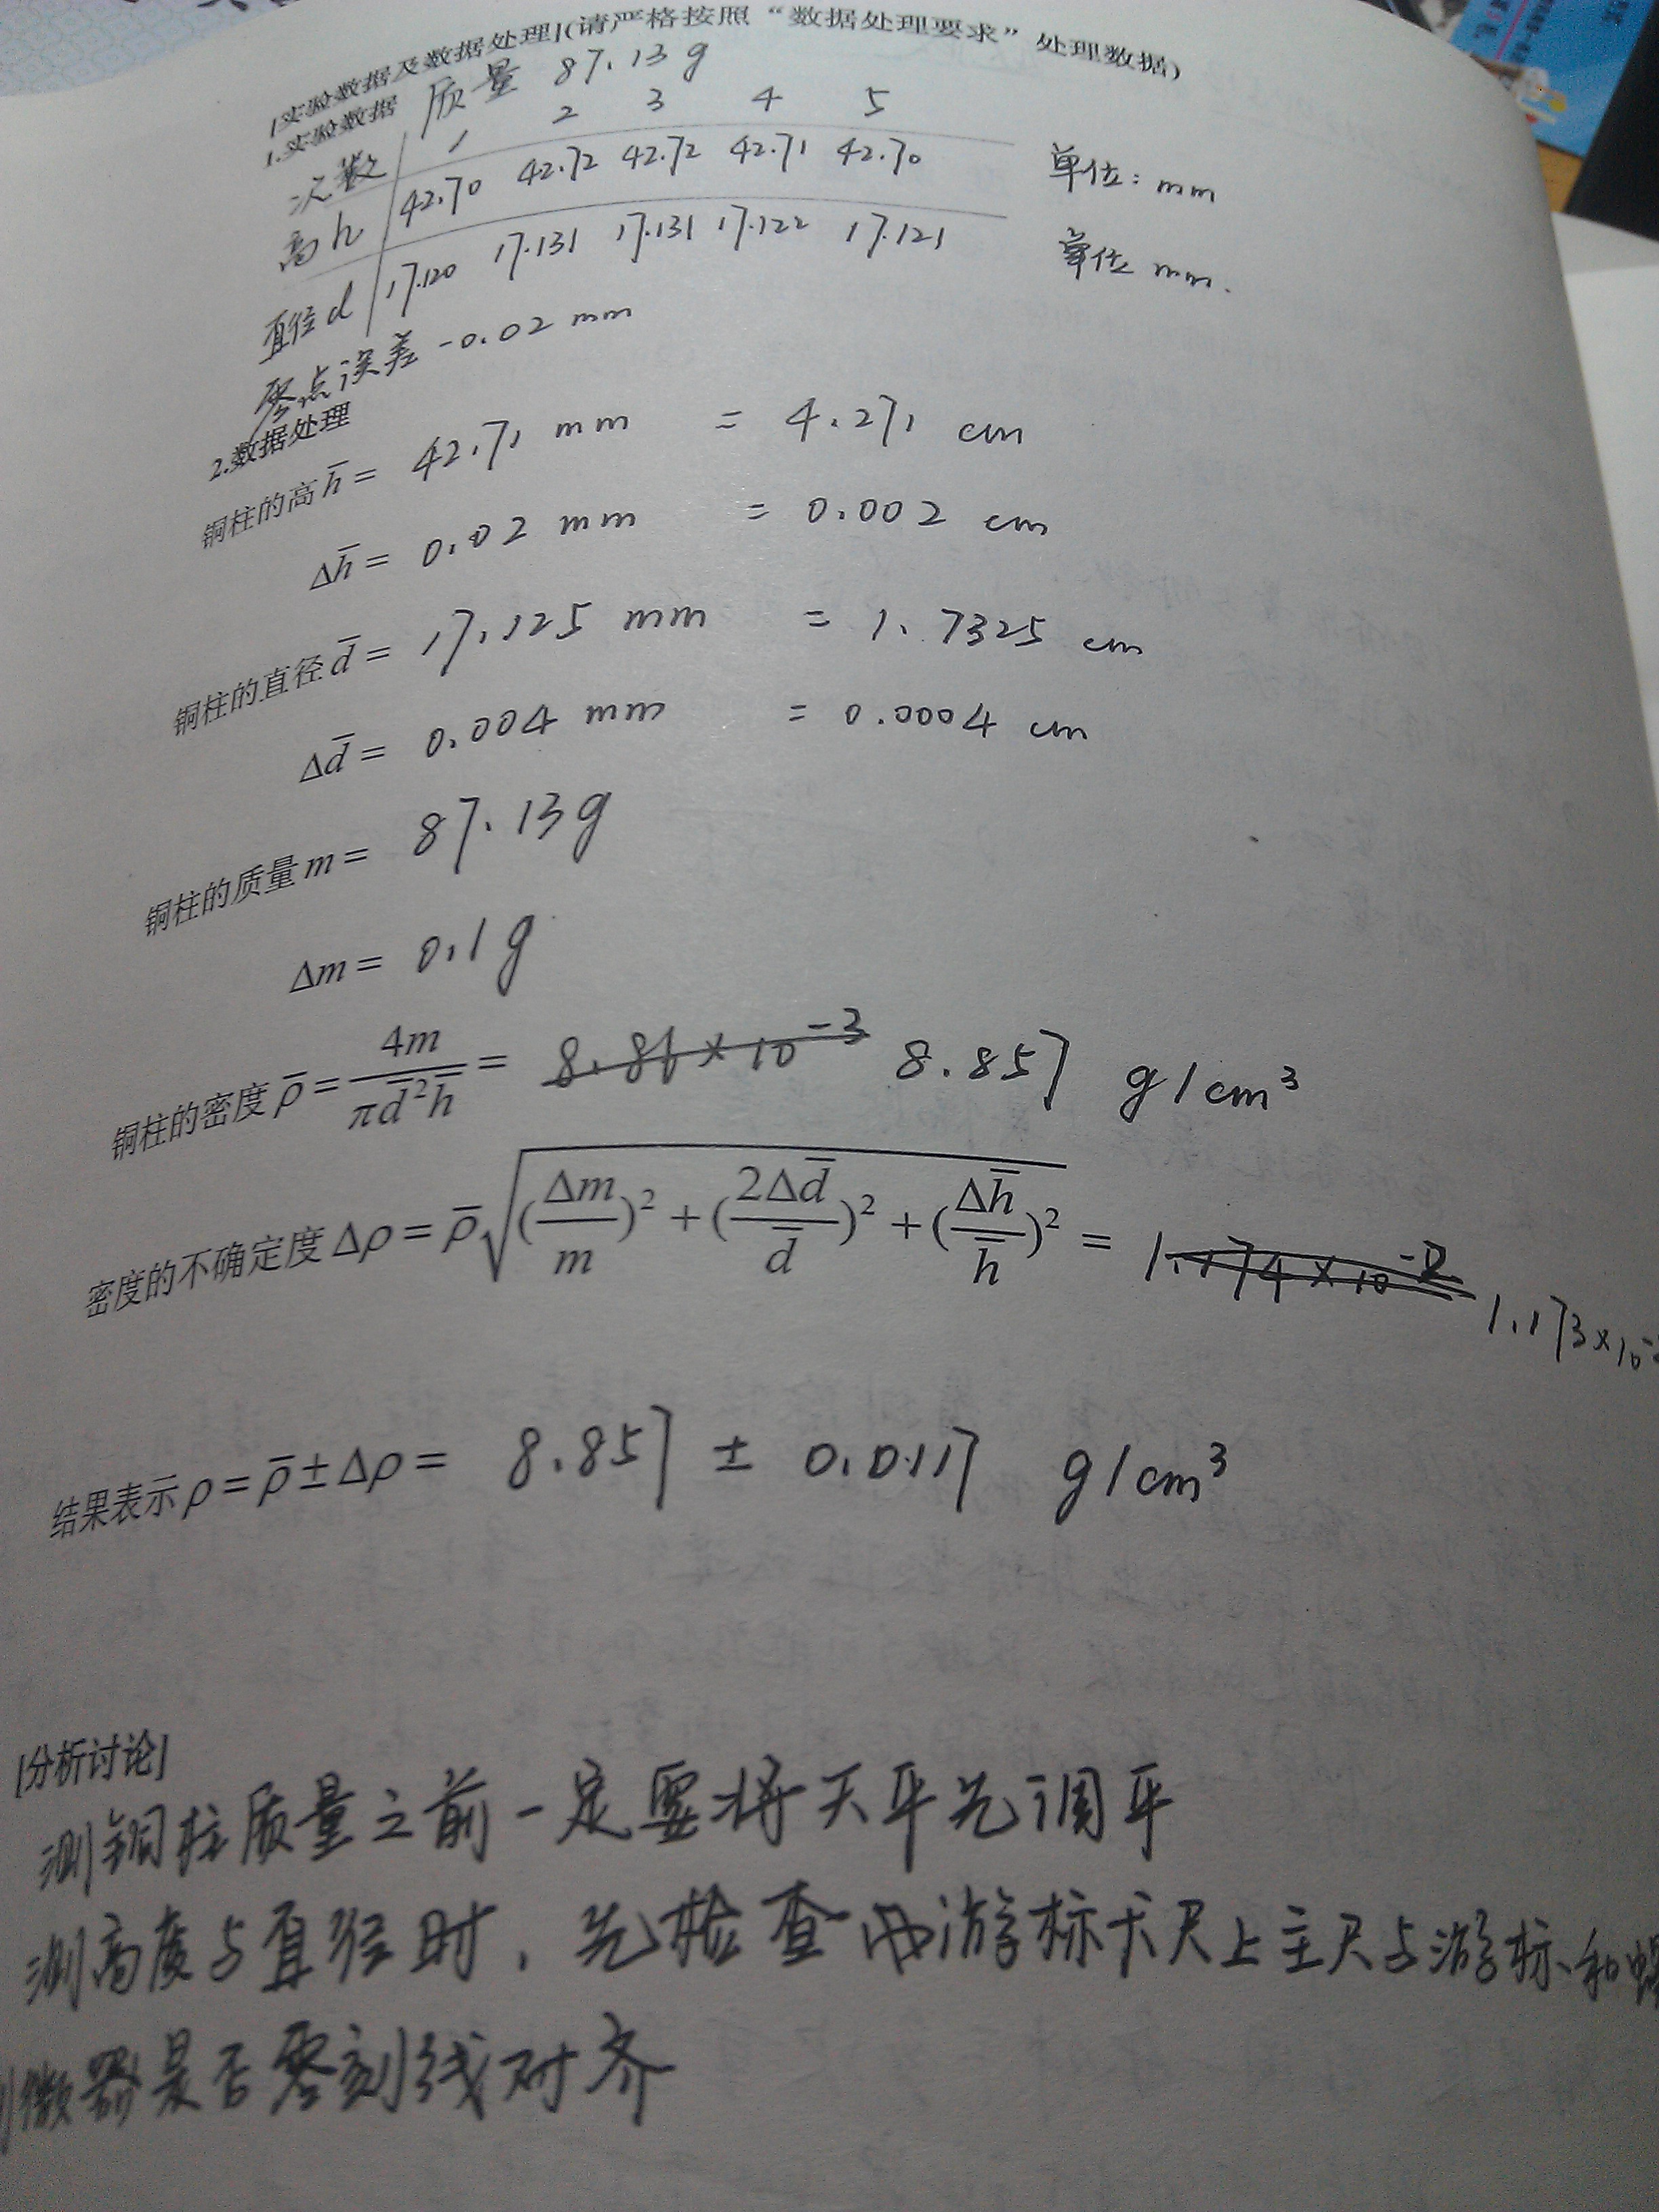 [实验数据及数据处理](请严格按照“数据处理要求”处理数据)
1.实验数据 质量 87.13g
次数 1 2 3 4 5
高h 42.70 42.72 42.72 42.71 42.70 单位:mm
直径d 17.120 17.131 17.131 17.122 17.121 单位 mm.
零点误差 -0.02 mm
2.数据处理
铜柱的高 h̄ = 42.71 mm = 4.271 cm
Δh̄ = 0.02 mm = 0.002 cm
铜柱的直径 d̄ = 17.125 mm = 1.7325 cm
Δd̄ = 0.004 mm = 0.0004 cm
铜柱的质量 m = 87.13g
Δm = 0.1g
铜柱的密度 ρ̄ = 4m/πd̄²h̄ = 8.86×10⁻³ 8.857 g/cm³
密度的不确定度 Δρ = ρ̄√((Δm/m)² + (2Δd̄/d̄)² + (Δh̄/h̄)²) = 1.174×10⁻² 1.173×10⁻²
结果表示 ρ = ρ̄ ± Δρ = 8.857 ± 0.0117 g/cm³
[分析讨论]
测铜柱质量之前一定要将天平先调平
测高度与直径时,先检查游标卡尺上主尺与游标和螺
测微器是否零刻线对齐